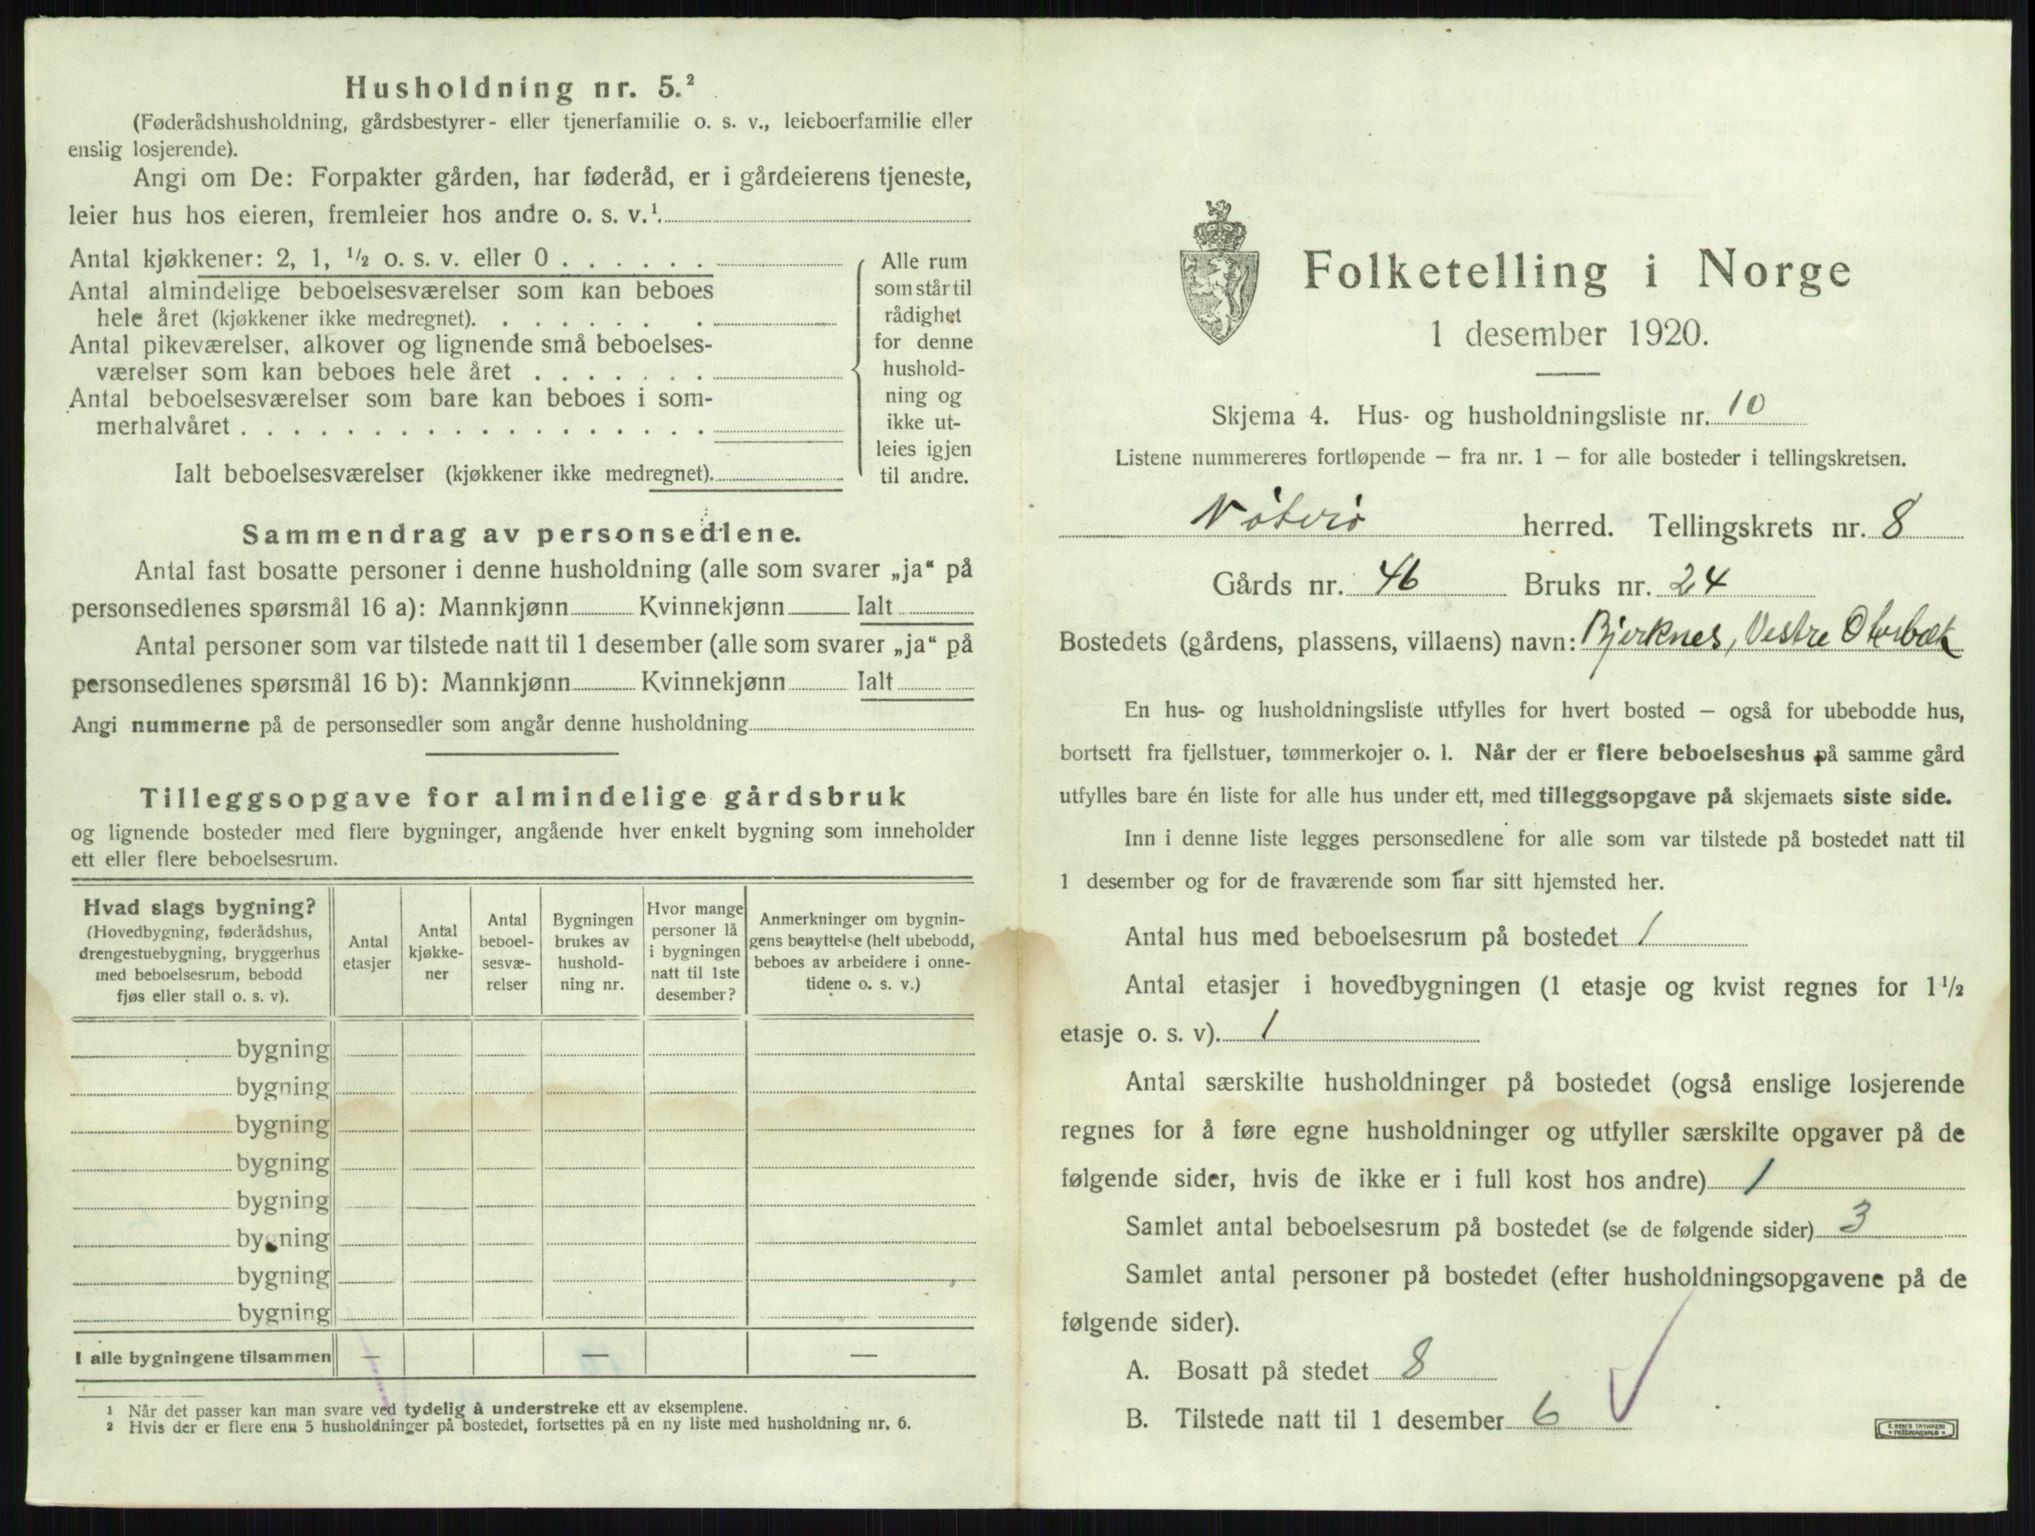 Husholdning nr. 5.²
(Føderådshusholdning, gårdsbestyrer- eller tjenerfamilie o. s. v., leieboerfamilie eller
enslig losjerende).
Angi om De: Forpakter gården, har føderåd, er i gårdeierens tjeneste,
leier hus hos eieren, fremleier hos andre o. s. v.¹.
Antal kjøkkener: 2, 1, ½ o. s. v. eller 0 . . . . . .
Antal almindelige beboelsesværelser som kan beboes
hele året (kjøkkener ikke medregnet). . . . . . . .
Antal pikeværelser, alkover og lignende små beboelses-
værelser som kan beboes hele året . . . . . . .
Antal beboelsesværelser som bare kan beboes i som-
merhalvåret . . . . . . . . . . . . . . . . . .
Ialt beboelsesværelser (kjøkkener ikke medregnet).
Alle rum
som står til
rådighet
for denne
hushold-
ning og
ikke ut-
leies igjen
til andre.
Sammendrag av personsedlene.
Antal fast bosatte personer i denne husholdning (alle som svarer „ja“ på
personsedlenes spørsmål 16 a): Mannkjønn Kvinnekjønn Ialt
Antal personer som var tilstede natt til 1 desember (alle som svarer „ja“ på
personsedlenes spørsmål 16 b): Mannkjønn Kvinnekjønn Ialt
Angi nummerne på de personsedler som angår denne husholdning
Tilleggsopgave for almindelige gårdsbruk
og lignende bosteder med flere bygninger, angående hver enkelt bygning som inneholder
ett eller flere beboelsesrum.
Hvad slags bygning?
(Hovedbygning, føderådshus,
drengestuebygning, bryggerhus
med beboelsesrum, bebodd
fjøs eller stall o. s. v).
Antal
etasjer
Antal
kjøkke-
ner
Antal
beboel-
sesvæ-
relser
Bygningen
brukes av
hushold-
ning nr.
Hvor mange
personer lå
i bygningen
natt til 1ste
desember?
Anmerkninger om bygnin-
gens benyttelse (helt ubebodd,
beboes av arbeidere i onne-
tidene o. s. v.)
bygning
bygning
bygning
bygning
bygning
bygning
bygning
bygning
I alle bygningene tilsammen — — —
¹ Når det passer kan man svare ved tydelig å understreke ett av eksemplene.
² Hvis der er flere enn 5 husholdninger på bostedet, fortsettes på en ny liste med husholdning nr. 6.
Folketelling i Norge
1 desember 1920.
Skjema 4. Hus- og husholdningsliste nr. 10
Listene nummereres fortløpende — fra nr. 1 — for alle bosteder i tellingskretsen.
Nøterø herred. Tellingskrets nr. 8
Gårds nr. 46 Bruks nr. 24
Bostedets (gårdens, plassens, villaens) navn: Bjerknes, Vestre Oterbæk
En hus- og husholdningsliste utfylles for hvert bosted — også for ubebodde hus,
bortsett fra fjellstuer, tømmerkojer o. l. Når der er flere beboelseshus på samme gård
utfylles bare én liste for alle hus under ett, med tilleggsopgave på skjemaets siste side.
Inn i denne liste legges personsedlene for alle som var tilstede på bostedet natt til
1 desember og for de fraværende som har sitt hjemsted her.
Antal hus med beboelsesrum på bostedet 1
Antal etasjer i hovedbygningen (1 etasje og kvist regnes for 1½
etasje o. s. v). 1
Antal særskilte husholdninger på bostedet (også enslige losjerende
regnes for å føre egne husholdninger og utfyller særskilte opgaver på de
følgende sider, hvis de ikke er i full kost hos andre) 1
Samlet antal beboelsesrum på bostedet (se de følgende sider) 3
Samlet antal personer på bostedet (efter husholdningsopgavene på de
følgende sider).
A. Bosatt på stedet 8
B. Tilstede natt til 1 desember 6